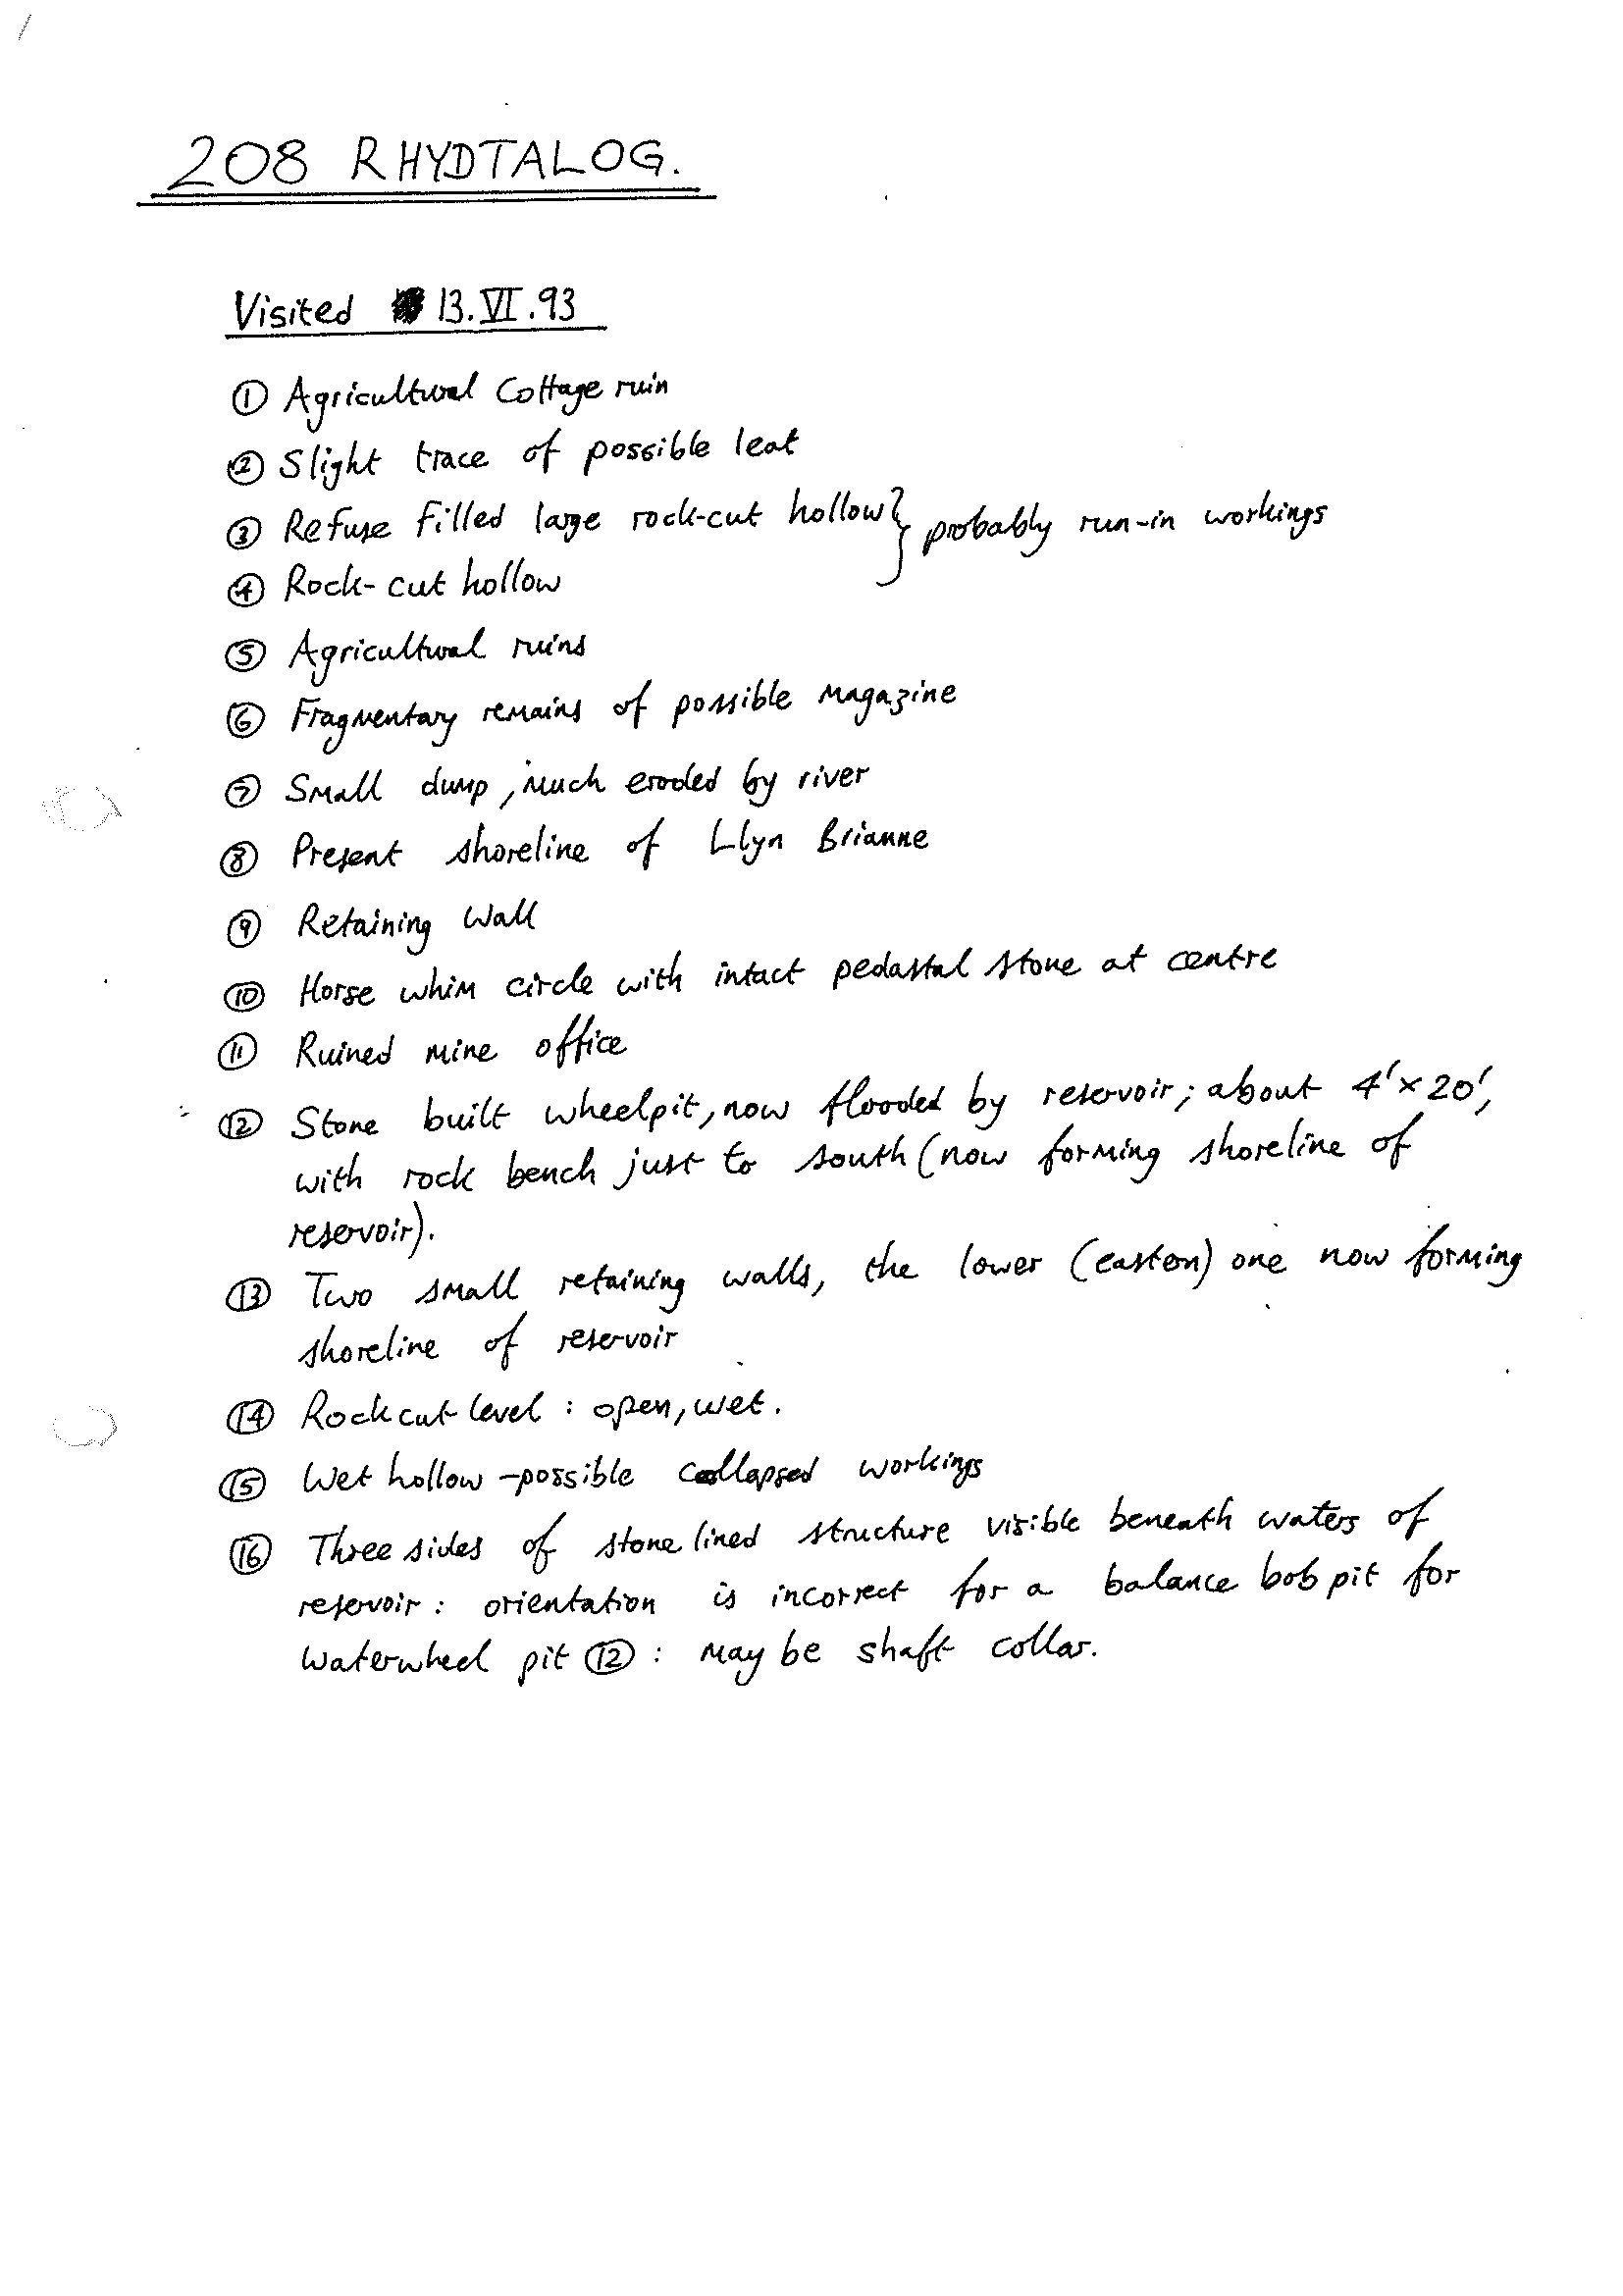 208 RHYDTALOG.
Visited 13.VI.93
① Agricultural Cottage ruin
② Slight trace of possible leat
③ Refuse filled large rock-cut hollow } probably run-in workings
④ Rock-cut hollow
⑤ Agricultural ruins
⑥ Fragmentary remains of possible magazine
⑦ Small dump, much eroded by river
⑧ Present shoreline of Llyn Brianne
⑨ Retaining Wall
⑩ Horse whim circle with intact pedastal stone at centre
⑪ Ruined mine office
⑫ Stone built wheelpit, now flooded by reservoir; about 4' x 20',
with rock bench just to south (now forming shoreline of
reservoir).
⑬ Two small retaining walls, the lower (eastern) one now forming
shoreline of reservoir
⑭ Rock cut level : open, wet.
⑮ Wet hollow - possible collapsed workings
⑯ Three sides of stone lined structure visible beneath waters of
reservoir : orientation is incorrect for a balance bob pit for
waterwheel pit ⑫ : may be shaft collar.